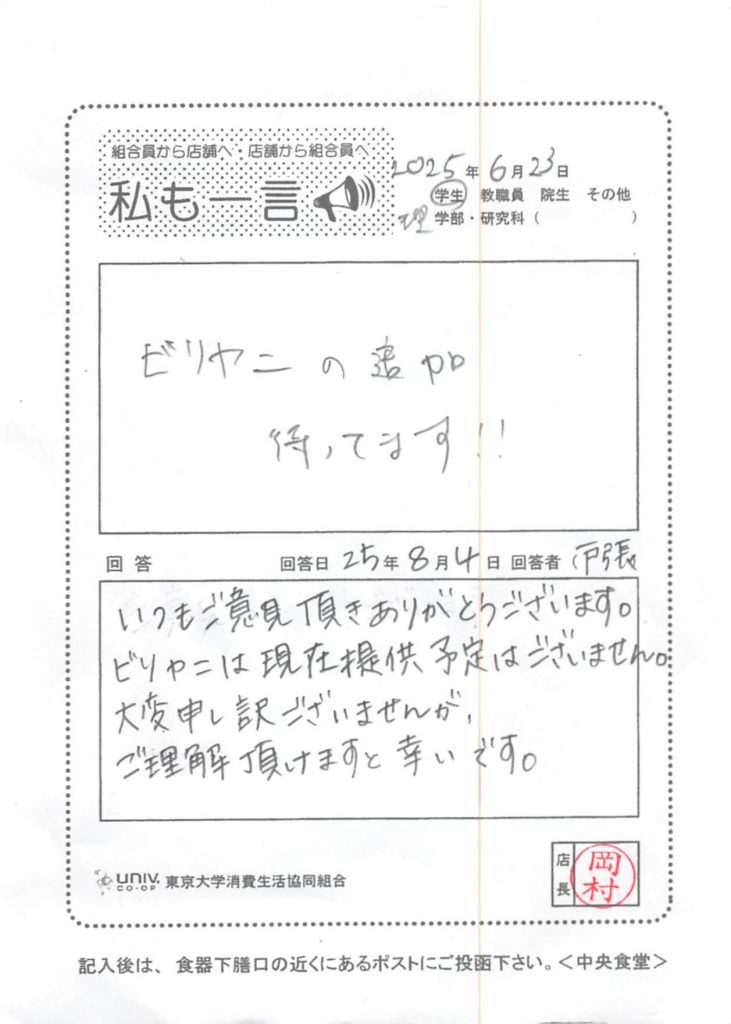 組合員から店舗へ・店舗から組合員へ
私も一言
2025年6月23日
学生 教職員 院生 その他
理 学部・研究科（　　　　　）
ビリヤニの追加
待ってます!!
回答 回答日 25年8月4日 回答者（戸張
いつもご意見頂きありがとうございます。
ビリヤニは現在提供予定はございません。
大変申し訳ございませんが、
ご理解頂けますと幸いです。
UNIV. CO-OP 東京大学消費生活協同組合
店長 岡村
記入後は、食器下膳口の近くにあるポストにご投函下さい。＜中央食堂＞